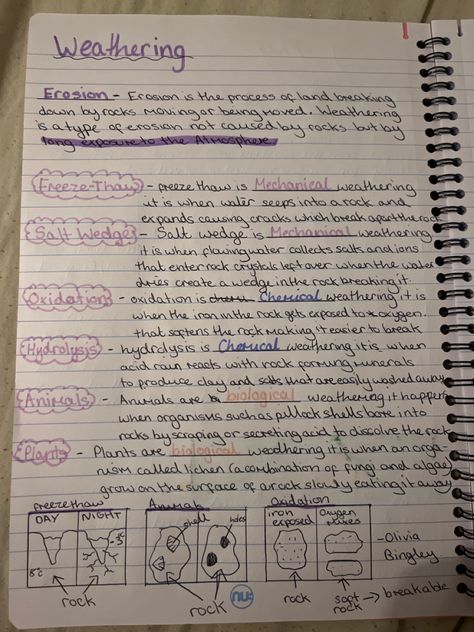 Weathering
Erosion - Erosion is the process of land breaking
down by rocks moving or being moved. Weathering
is a type of erosion not caused by rocks but by
long exposure to the Atmosphere.
Freeze-Thaw - freeze thaw is Mechanical weathering
it is when water seeps into a rock and
expands causing cracks which break apart the rock
Salt Wedge - Salt wedge is Mechanical weathering
it is when flowing water collects salts and ions
that enter rock crystals left over when the water
dries create a wedge in the rock breaking it.
Oxidation - oxidation is Chemical weathering it is
when the iron in the rock gets exposed to oxygen.
that softens the rock making it easier to break
Hydrolysis - hydrolysis is Chemical weathering it is when
acid rain reacts with rock forming minerals
to produce clay and salts that are easily washed away
Animals - Animals are biological weathering it happens
when organisms such as pillock shells bore into
rocks by scraping or secreting acid to dissolve the rock
Plants - Plants are biological weathering it is when an orga-
nism called lichen (a combination of fungi and algae)
grow on the surface of a rock slowly eating it away
freeze thaw
Animals
Oxidation
DAY
NIGHT
shell
holes
iron exposed
Oxygen
- Olivia
Bingley
rock
rock
rock
rock
→ breakable
nu: